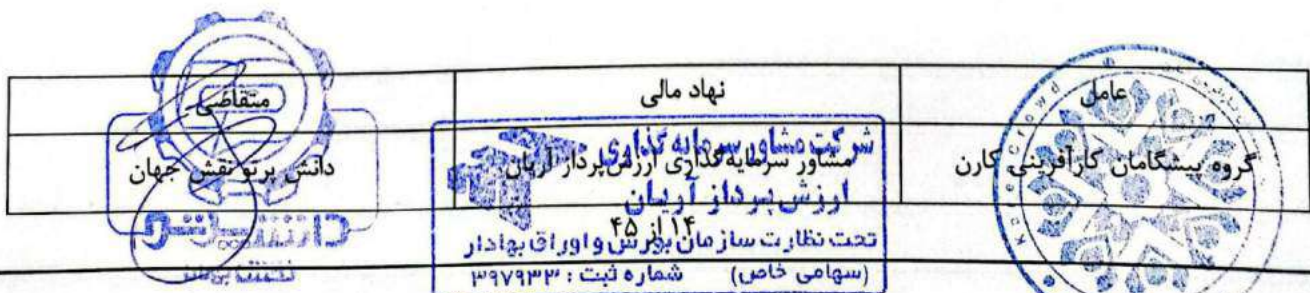 عامل
نهاد مالی
متقاضی
گروه پیشگامان کارآفرینی کارن
مشاور سرمایه گذاری ارزش‌پرداز آریان
دانش پرتو نقش جهان
۱۴ از ۴۵
شرکت مشاور سرمایه گذاری
ارزش پرداز آریان
تحت نظارت سازمان بورس و اوراق بهادار
(سهامی خاص) شماره ثبت : ۳۹۷۹۳۳